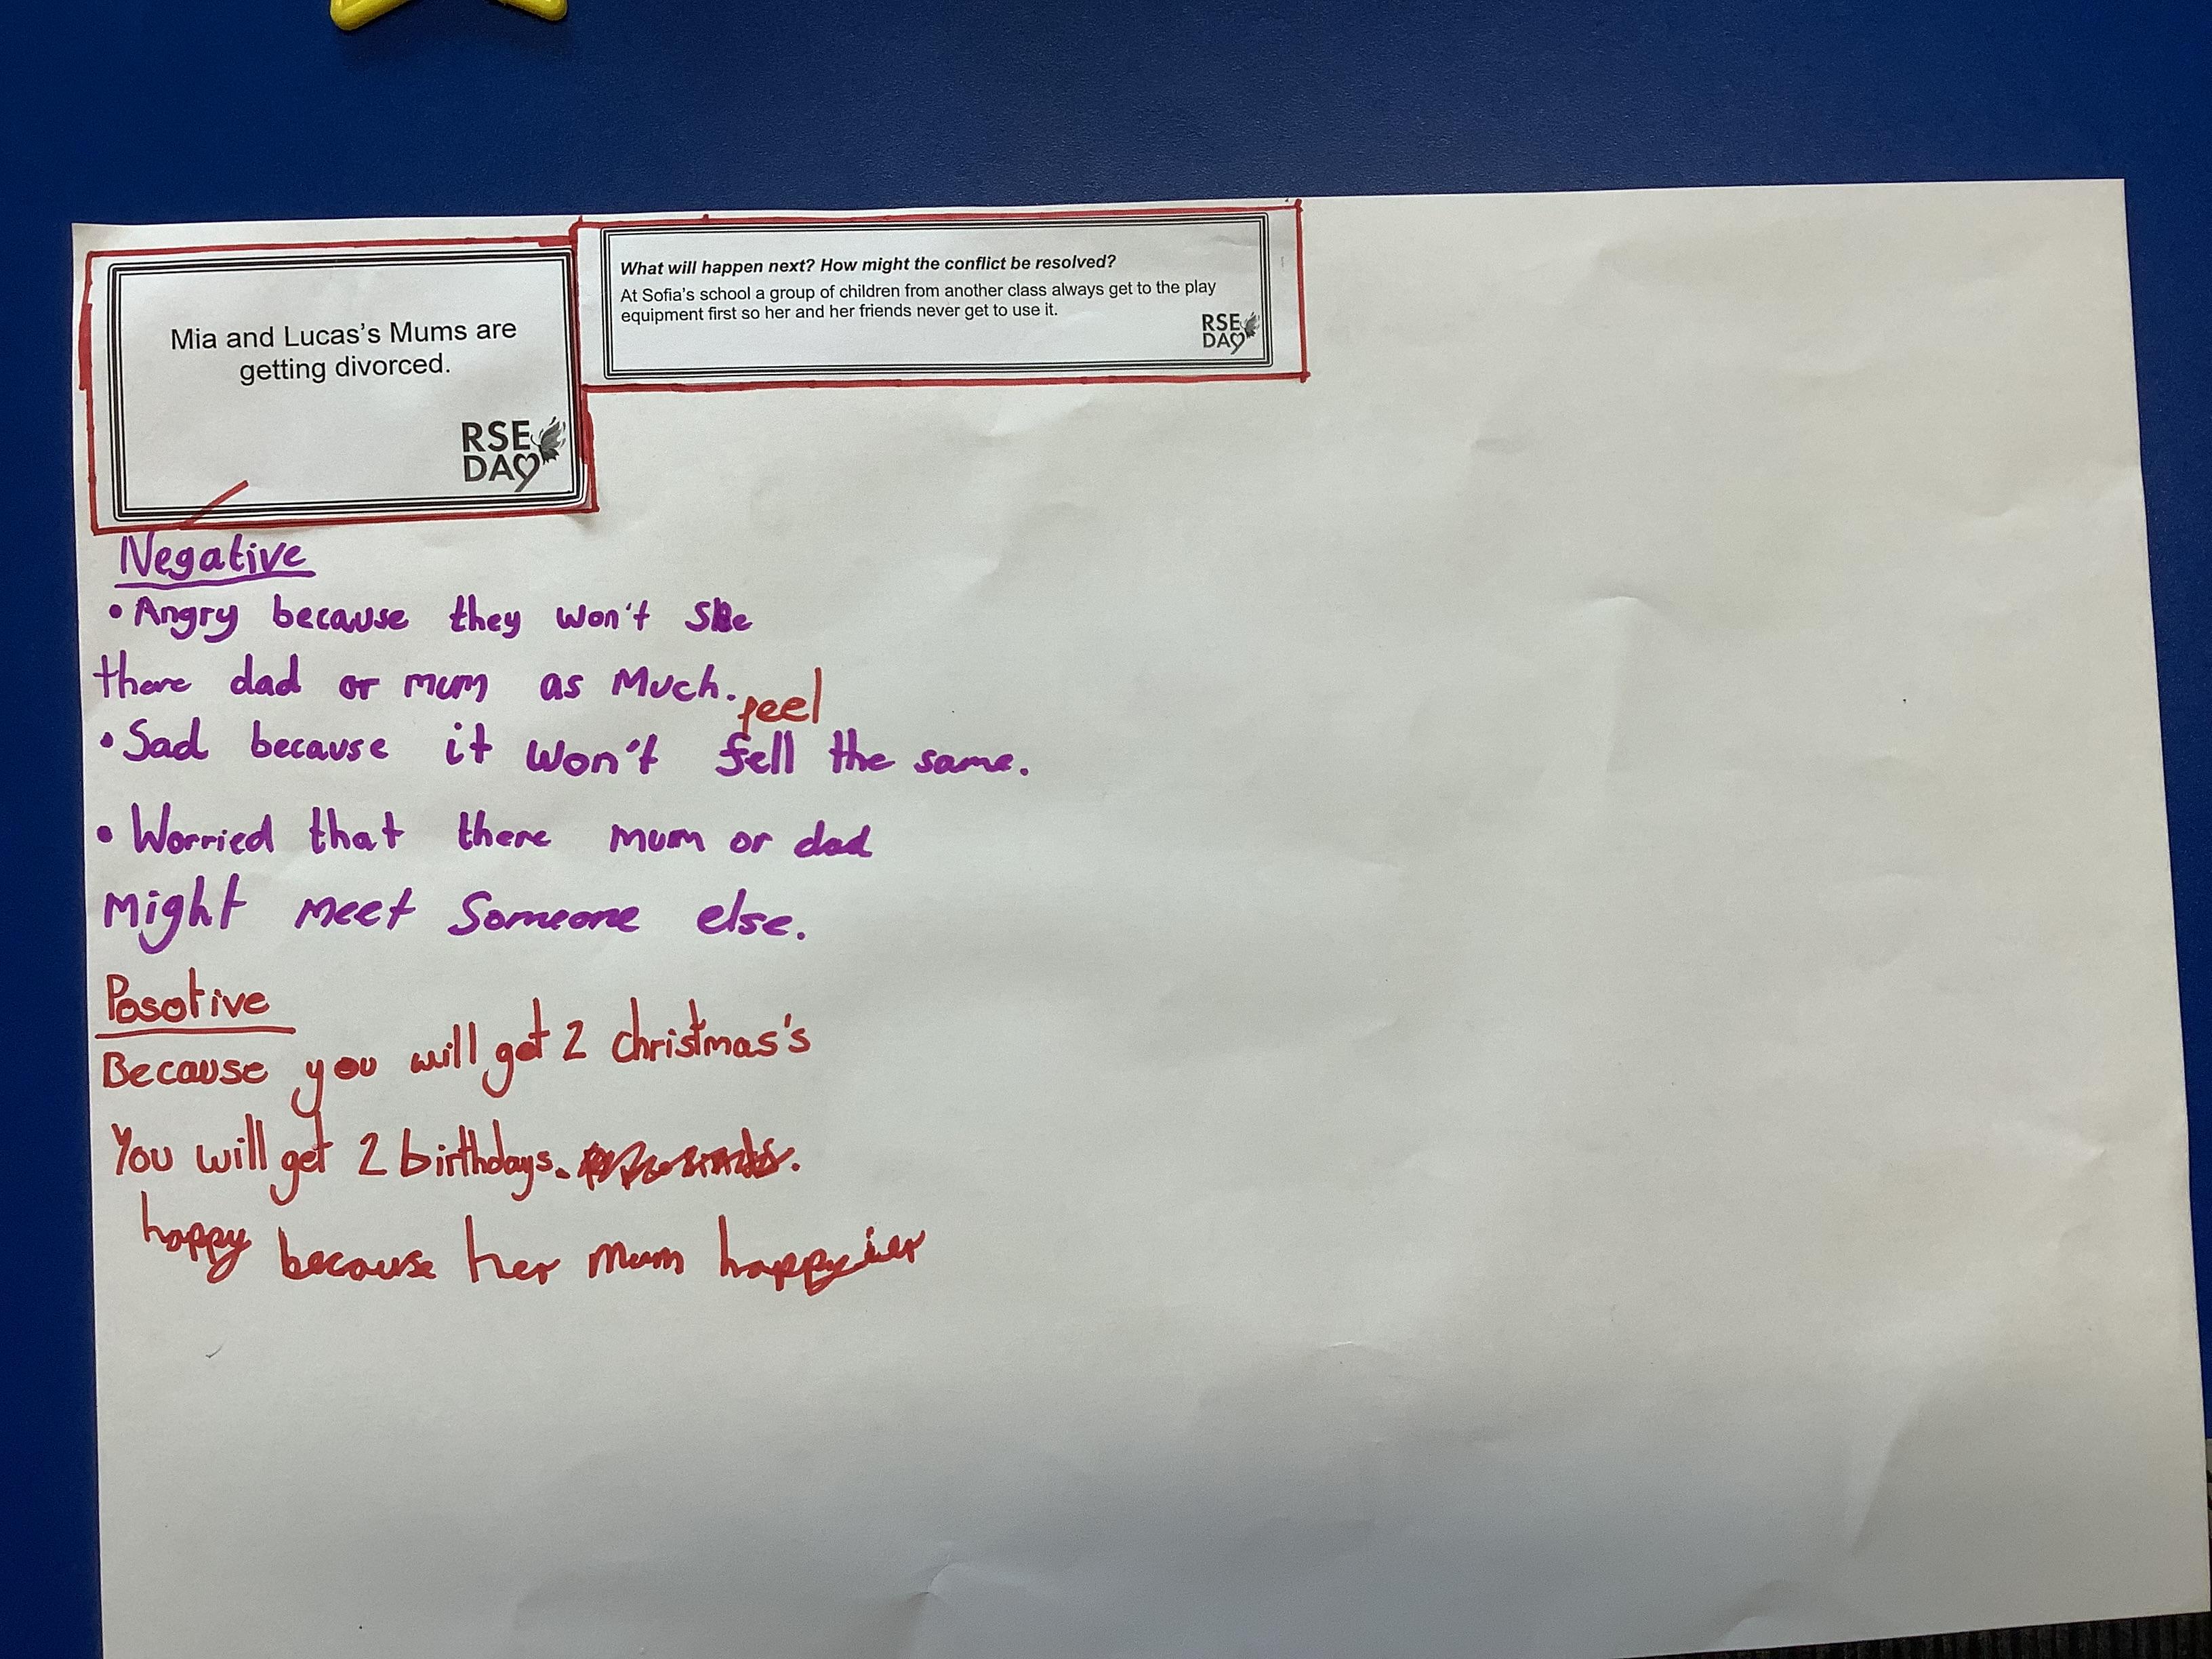 Mia and Lucas's Mums are
getting divorced.
RSE
DAY
What will happen next? How might the conflict be resolved?
At Sofia's school a group of children from another class always get to the play
equipment first so her and her friends never get to use it.
RSE
DAY
Negative
• Angry because they won't see
there dad or mum as much.
feel
• Sad because it won't fell the same.
• Worried that there mum or dad
might meet someone else.
Posotive
Because you will get 2 christmas's
You will get 2 birthdays.
happy because her mum happyier